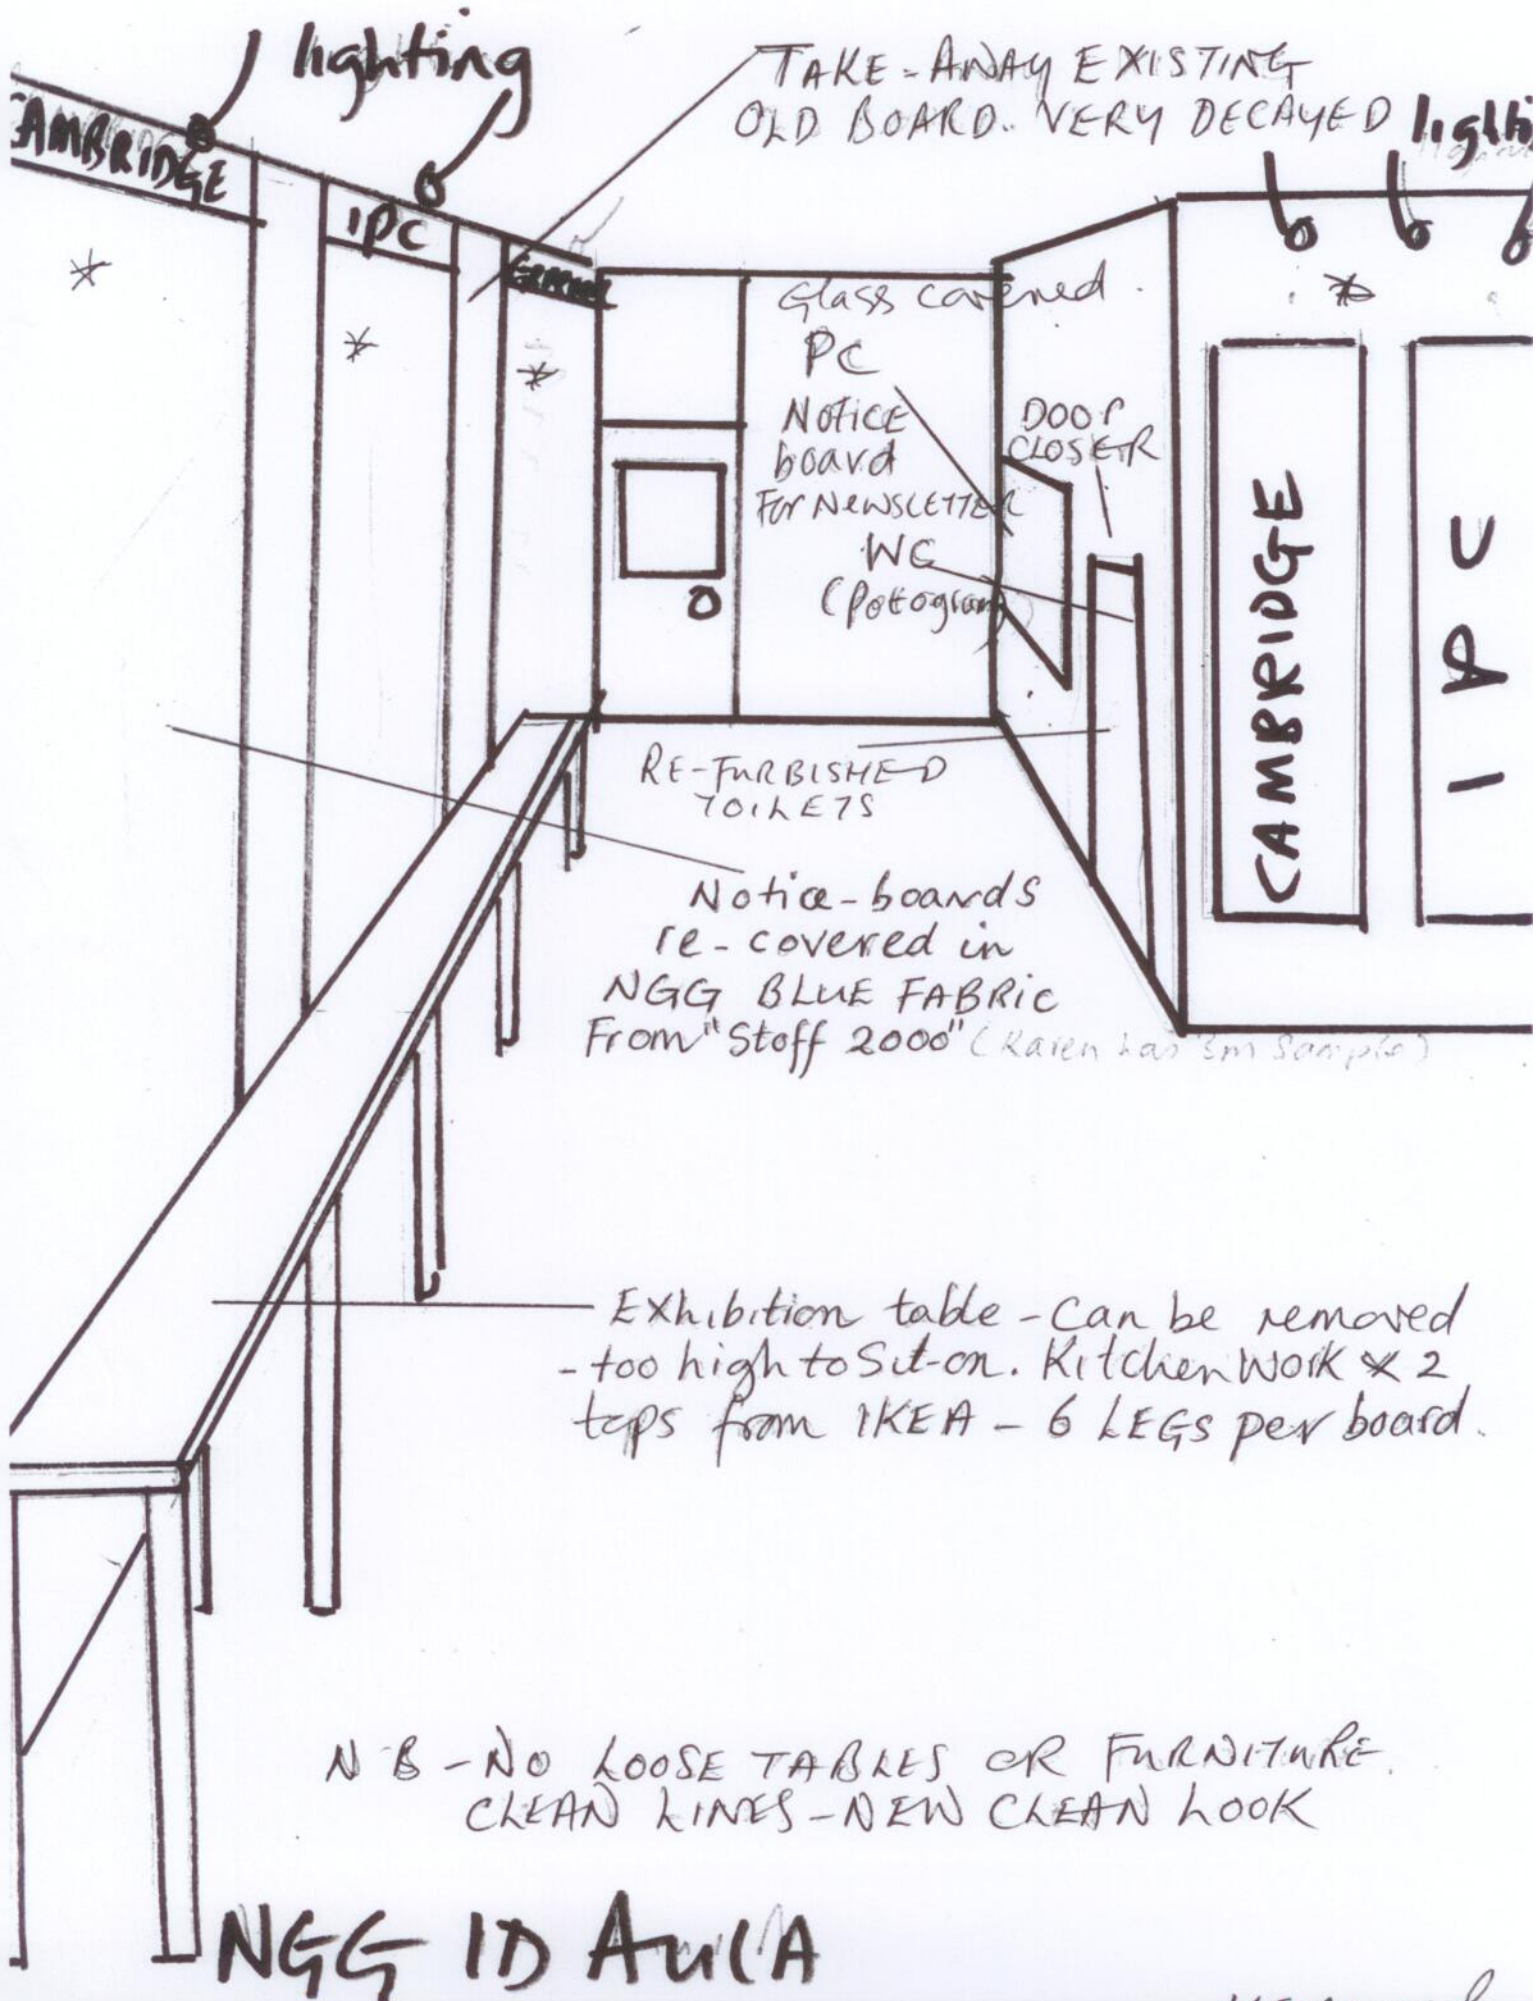 lighting
TAKE-AWAY EXISTING
OLD BOARD. VERY DECAYED
lighti
CAMBRIDGE
IPC
Glass covered.
PC
Notice
board
For NEWSLETTER
DOOR
CLOSER
WC
CAMBRIDGE
IPC
RE-FURBISHED
TOILETS
Notice-boards
re-covered in
NGG BLUE FABRIC
From "Stoff 2000" (Karen has 3m Sample)
Exhibition table - Can be removed
- too high to Sit-on. Kitchen Work x 2
tops from IKEA - 6 LEGS per board.
NB - NO LOOSE TABLES OR FURNITURE.
CLEAN LINES - NEW CLEAN LOOK
NGG ID AULA